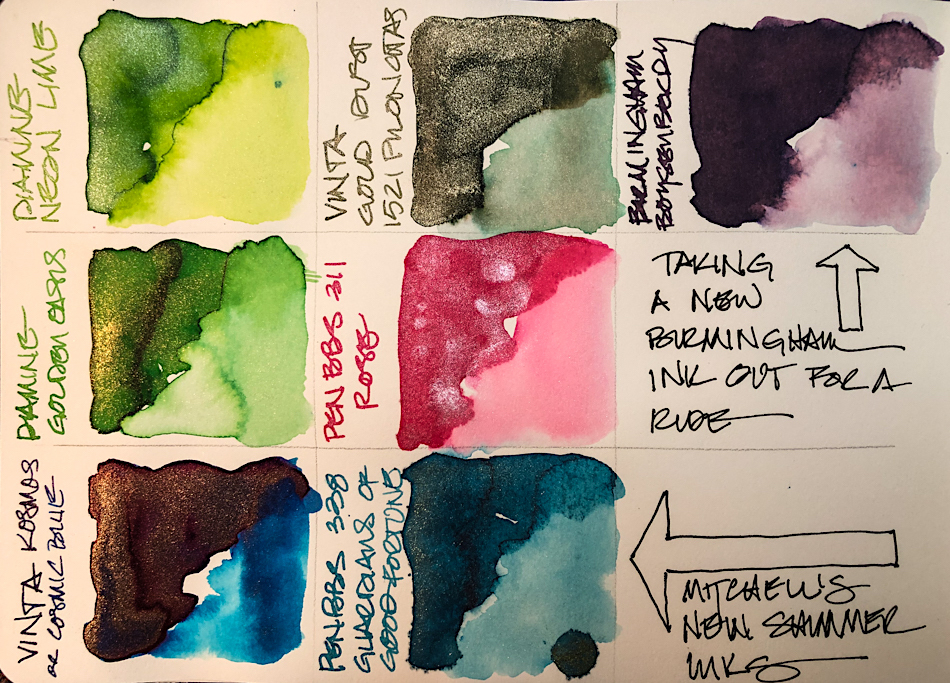 DIAMINE
NEON LIME
VINTA
GOLD DUST
1521 PIONOTAS
BIRMINGHAM
BOYSENBERRY
DIAMINE
GOLDEN OASIS
PENBBS 311
ROSE
TAKING
A NEW
BIRMINGHAM
INK OUT FOR A
RIDE
VINTA KOSMOS
OR COSMIC BLUE
PENBBS 338
GUARDIANS OF
GOOD FORTUNE
MITCHELL'S
NEW SUMMER
INKS